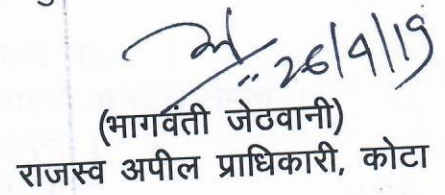 26/4/19
(भागवंती जेठवानी)
राजस्व अपील प्राधिकारी, कोटा